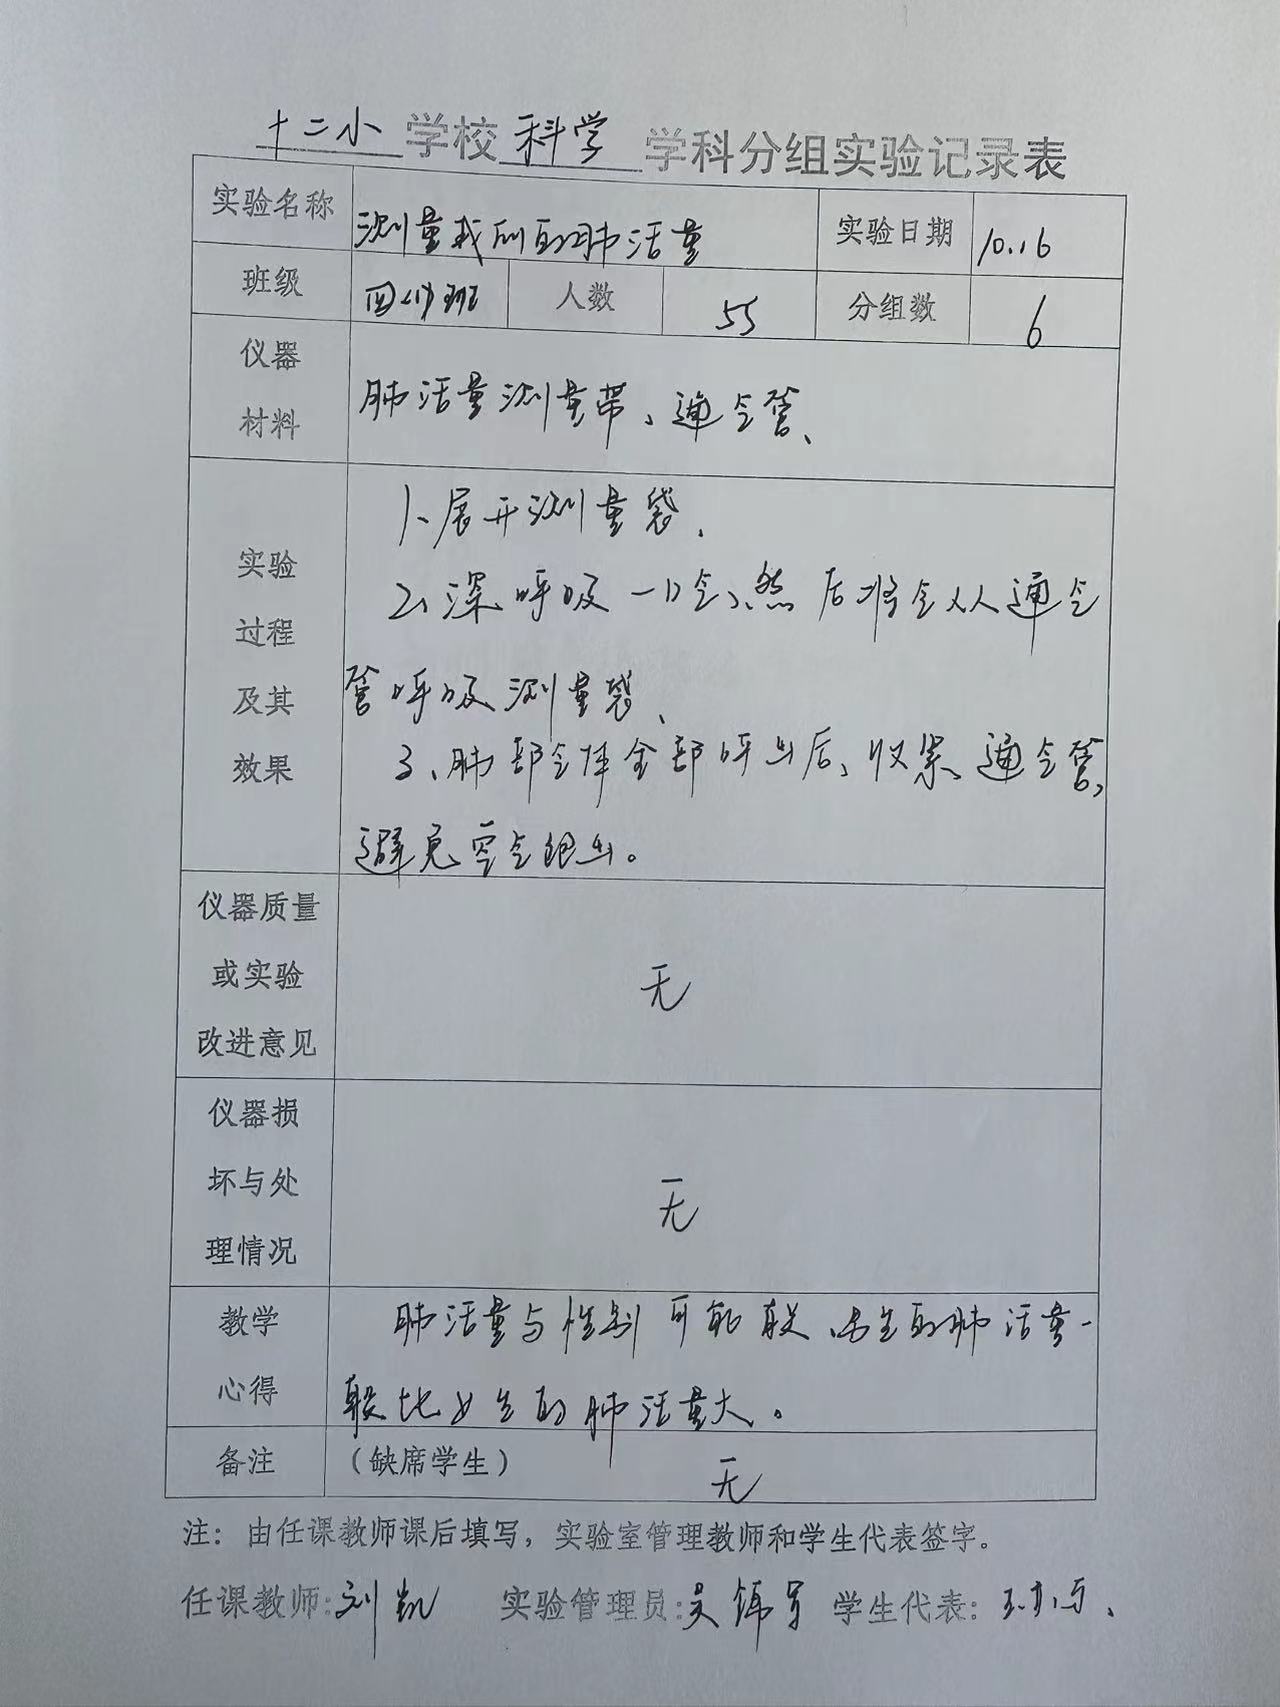 十二小 学校 科学 学科分组实验记录表
实验名称 测量我们的肺活量 实验日期 10.16
班级 四 班 人数 55 分组数 6
仪器
材料
肺活量测量带、通气管、
实验
过程
及其
效果
1、展开测量袋、
2、深呼吸一口气、然后将气从通气
管呼吸测量袋、
3、肺部气体全部呼出后、收紧通气管、
避免空气跑出。
仪器质量
或实验
改进意见
无
仪器损
坏与处
理情况
无
教学
心得
肺活量与性别可能有关、男生的肺活量一
般比女生的肺活量大。
备注 (缺席学生) 无
注：由任课教师课后填写，实验室管理教师和学生代表签字。
任课教师:刘凯 实验管理员:吴 学生代表: